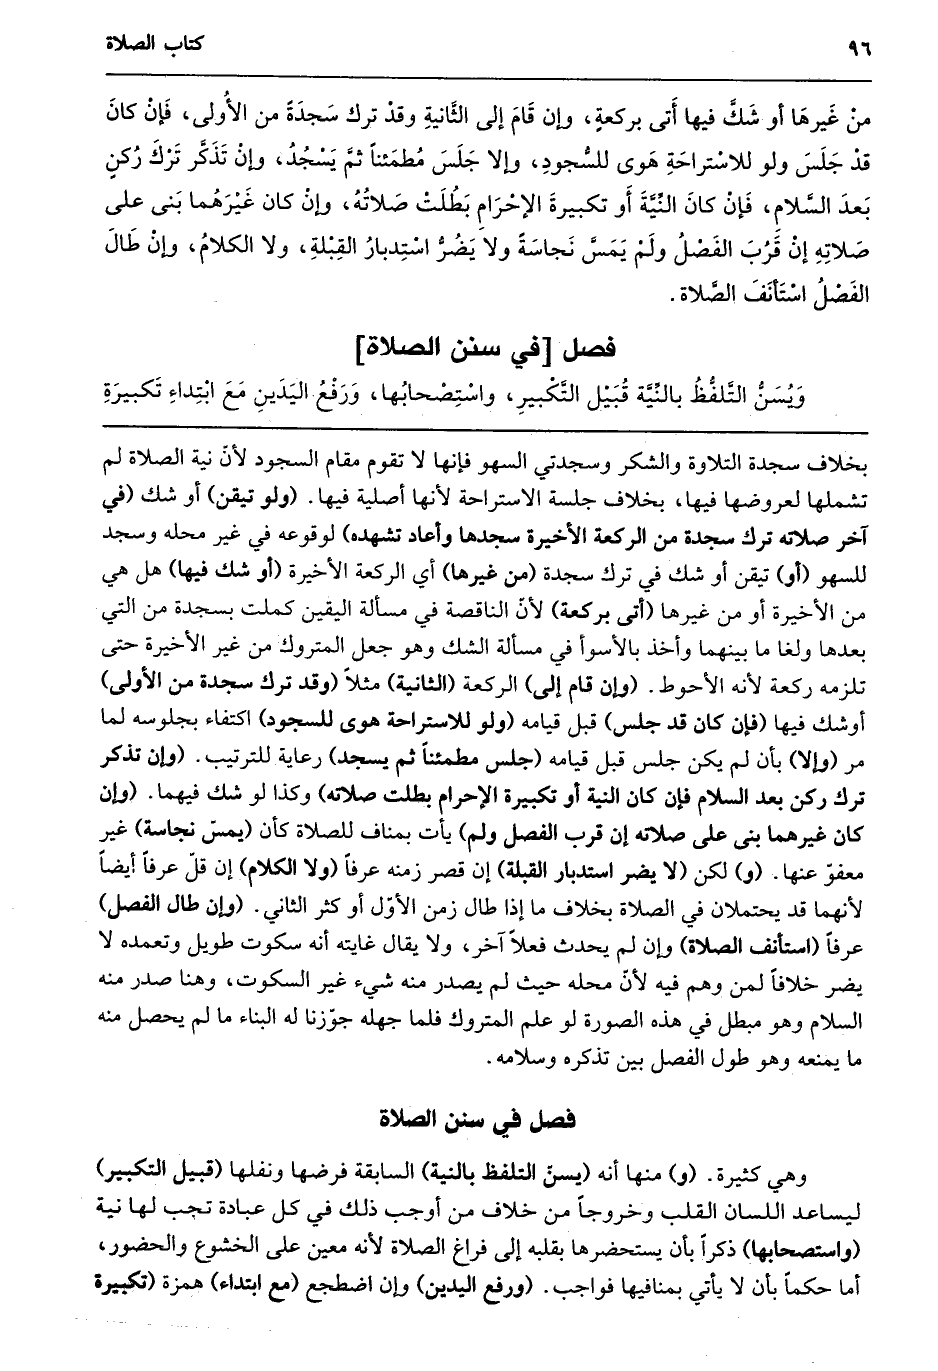 ٩٦
كتاب الصلاة
منْ غَيرهَا أو شَكَّ فيها أَتى بركعةٍ، وإن قَامَ إلى الثَّانيةِ وقدْ ترك سَجدَةً من الأُولى، فَإنْ كانَ
قدْ جَلَسَ ولو للاسْتراحَةِ هَوى للسُّجودِ، وإلا جَلَسَ مُطمَئناً ثمَّ يَسْجُدُ، وإنْ تَذَكَّر تَرْكَ رُكنٍ
بَعدَ السَّلام، فَإنْ كانَ النِّيَّةَ أَو تكبيرةَ الإحْرَامِ بَطُلَتْ صَلاتُهُ، وإنْ كان غَيْرَهُما بَنى على
صَلاتِهِ إنْ قَرُبَ الفَصْلُ ولَمْ يَمَسَّ نَجاسَةً ولا يَضُرُّ اسْتِدبارُ القِبْلةِ، ولا الكلامُ، وإنْ طَالَ
الفَصْلُ اسْتَأنَفَ الصَّلاة.
فصل [في سنن الصلاة]
وَيُسَنُّ التَّلفُّظُ بالنِّيَّة قُبَيْل التَّكْبيرِ، واسْتِصْحابُها، وَرَفْعُ اليَدَينِ مَعَ ابْتِداءِ تَكبيرَةِ
بخلاف سجدة التلاوة والشكر وسجدتي السهو فإنها لا تقوم مقام السجود لأنّ نية الصلاة لم
تشملها لعروضها فيها، بخلاف جلسة الاستراحة لأنها أصلية فيها. (ولو تيقن) أو شك (في
آخر صلاته ترك سجدة من الركعة الأخيرة سجدها وأعاد تشهده) لوقوعه في غير محله وسجد
للسهو (أو) تيقن أو شك في ترك سجدة (من غيرها) أي الركعة الأخيرة (أو شك فيها) هل هي
من الأخيرة أو من غيرها (أتى بركعة) لأنّ الناقصة في مسألة اليقين كملت بسجدة من التي
بعدها ولغا ما بينهما وأخذ بالأسوأ في مسألة الشك وهو جعل المتروك من غير الأخيرة حتى
تلزمه ركعة لأنه الأحوط. (وإن قام إلى) الركعة (الثانية) مثلاً (وقد ترك سجدة من الأولى)
أوشك فيها (فإن كان قد جلس) قبل قيامه (ولو للاستراحة هوى للسجود) اكتفاء بجلوسه لما
مر (وإلا) بأن لم يكن جلس قبل قيامه (جلس مطمئناً ثم يسجد) رعاية للترتيب. (وإن تذكر
ترك ركن بعد السلام فإن كان النية أو تكبيرة الإحرام بطلت صلاته) وكذا لو شك فيهما. (وإن
كان غيرهما بنى على صلاته إن قرب الفصل ولم) يأت بمناف للصلاة كأن (يمسّ نجاسة) غير
معفوّ عنها. (و) لكن (لا يضر استدبار القبلة) إن قصر زمنه عرفاً (ولا الكلام) إن قلّ عرفاً أيضاً
لأنهما قد يحتملان في الصلاة بخلاف ما إذا طال زمن الأوّل أو كثر الثاني. (وإن طال الفصل)
عرفاً (استأنف الصلاة) وإن لم يحدث فعلاً آخر، ولا يقال غايته أنه سكوت طويل وتعمده لا
يضر خلافاً لمن وهم فيه لأنّ محله حيث لم يصدر منه شيء غير السكوت، وهنا صدر منه
السلام وهو مبطل في هذه الصورة لو علم المتروك فلما جهله جوّزنا له البناء ما لم يحصل منه
ما يمنعه وهو طول الفصل بين تذكره وسلامه.
فصل في سنن الصلاة
وهي كثيرة. (و) منها أنه (يسنّ التلفظ بالنية) السابقة فرضها ونفلها (قبيل التكبير)
ليساعد اللسان القلب وخروجاً من خلاف من أوجب ذلك في كل عبادة تجب لها نية
(واستصحابها) ذكراً بأن يستحضرها بقلبه إلى فراغ الصلاة لأنه معين على الخشوع والحضور،
أما حكماً بأن لا يأتي بمنافيها فواجب. (ورفع اليدين) وإن اضطجع (مع ابتداء) همزة (تكبيرة